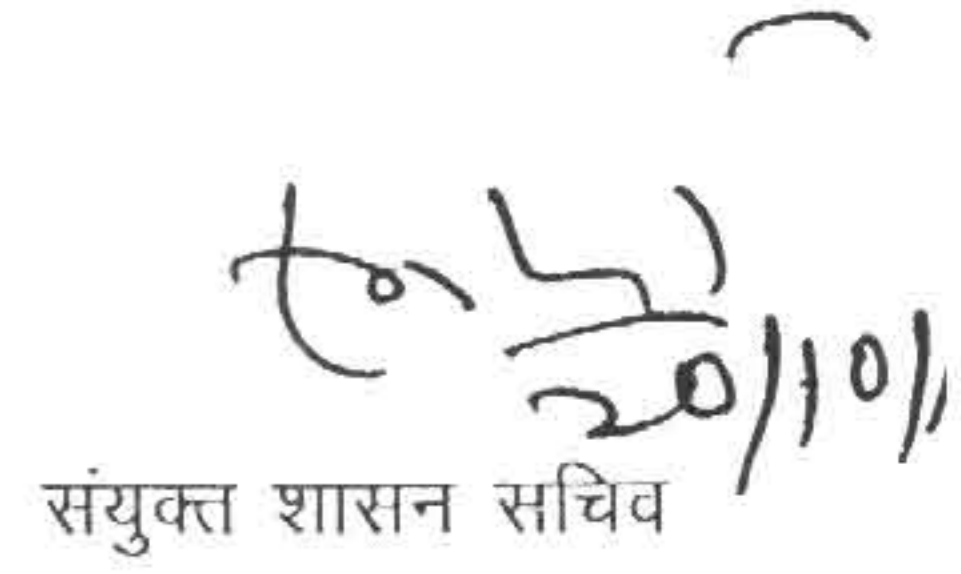 20/10/
संयुक्त शासन सचिव